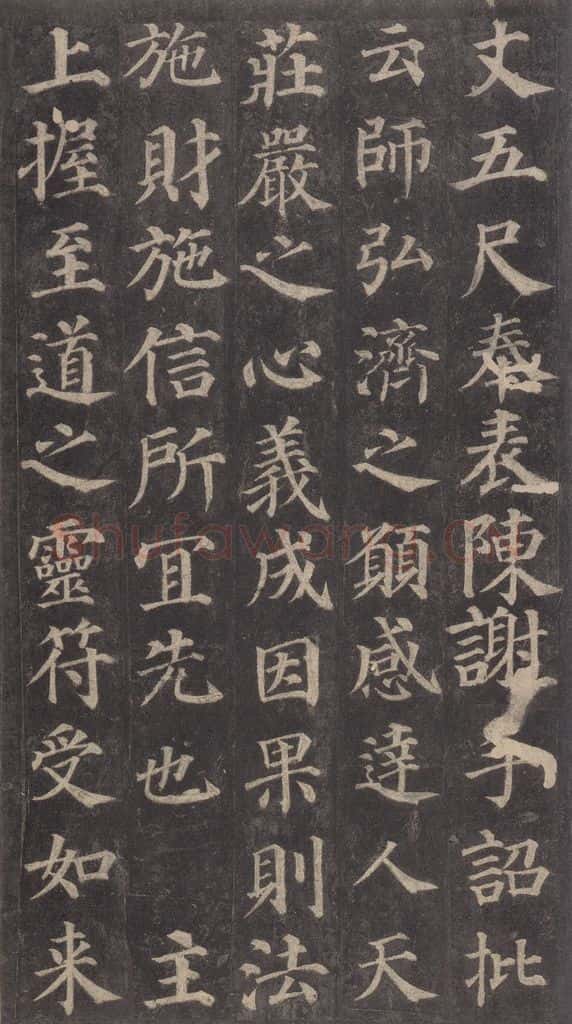 丈五尺奉表陳謝手詔批
云師弘濟之願感達人天
莊嚴之心義成因果則法
施財施信所宜先也　主
上握至道之靈符受如来
shufawang.cn